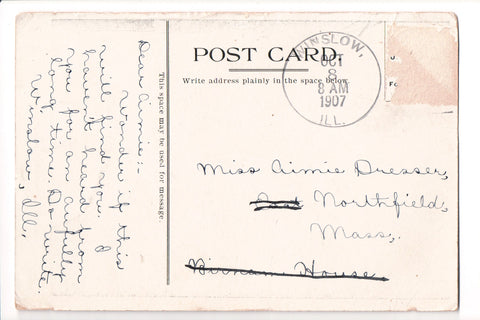 POST CARD.
Write address plainly in the space below.
This space may be used for message.
WINSLOW,
OCT
8
8 AM
1907
ILL.
Dear Aimie:-
Wonder if this
will find you. I
haven't heard from
you for an awfully
long time. Do write.
Winslow, Ill.
Miss Aimie Dresser,
Northfield,
Mass.
Birnam House.